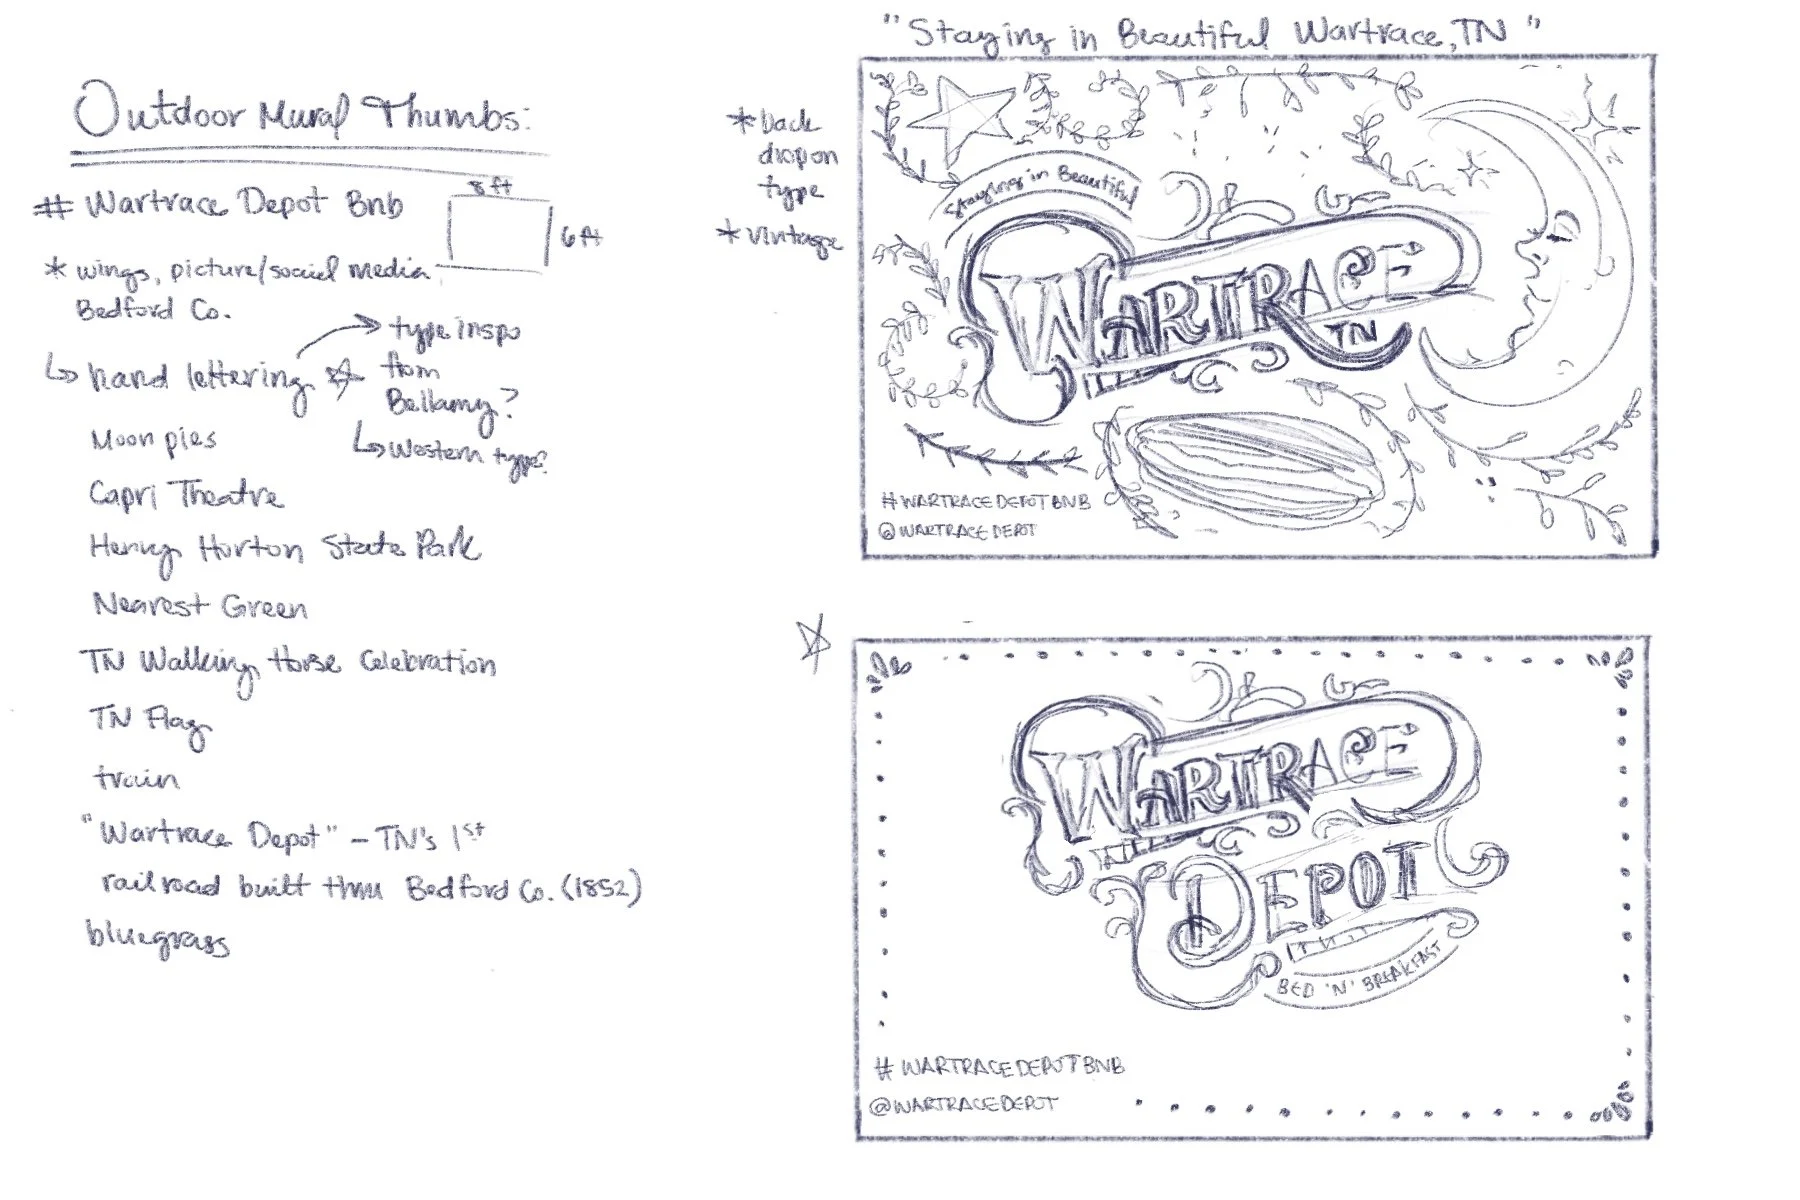 Outdoor Mural Thumbs:
# Wartrace Depot Bnb
8 ft
6 ft
* wings, picture/social media
Bedford Co.
↳ hand lettering
→ type inspo
from
Bellamy?
↳ Western type?
Moon pies
Capri Theatre
Henry Horton State Park
Nearest Green
TN Walking Horse Celebration
TN Flag
train
"Wartrace Depot" - TN's 1st
railroad built thru Bedford Co. (1852)
bluegrass
* back
drop on
type
* vintage
"Staying in Beautiful Wartrace, TN"
Staying in Beautiful
WARTRACE
TN
#WARTRACEDEPOTBNB
@WARTRACEDEPOT
WARTRACE
DEPOT
BED 'N' BREAKFAST
#WARTRACEDEPOTBNB
@WARTRACEDEPOT